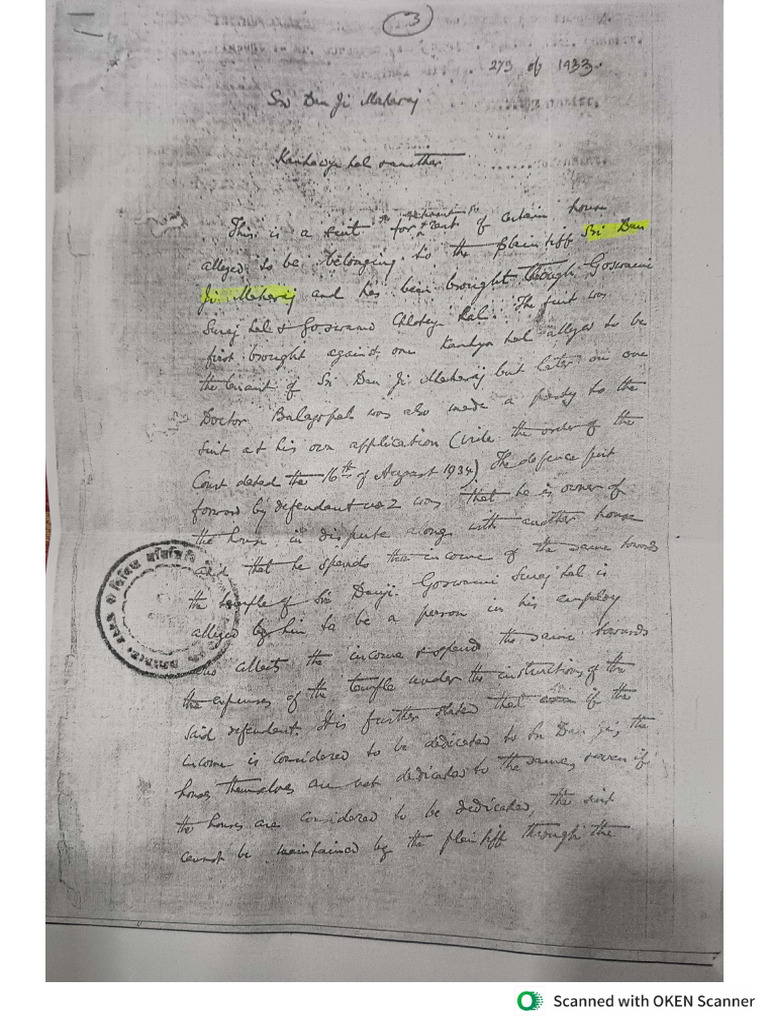 3
273 of 1933.
Sri Dau Ji Maharaj
Kanhaiya Lal & another
This is a suit for ejectment & rent of certain house
alleged to be belonging to the plaintiff Sri Dau
Ji Maharaj and has been brought through Goswami
Suraj Lal & Goswami Chhotey Lal. The suit was
first brought against one Kanhya Lal alleged to be
the tenant of Sri Dau Ji Maharaj but later on one
Doctor Balagopal was also made a party to the
suit at his own application (vide the order of the
Court dated the 16th of August 1934) The defence put
forward by defendant no 2 was that he is owner of
the house in dispute along with another house
and that he spends the income of the same towards
the temple of Sri Dauji. Goswami Suraj Lal is
alleged by him to be a person in his employ
who collects the income & spend the same towards
the expenses of the temple under the instructions of the
said defendant. It is further stated that even if the
income is considered to be dedicated to Sri Dau Ji, the
houses themselves are not dedicated to the same, & even if
the houses are considered to be dedicated, the suit
cannot be maintained by the plaintiff through the
Scanned with OKEN Scanner